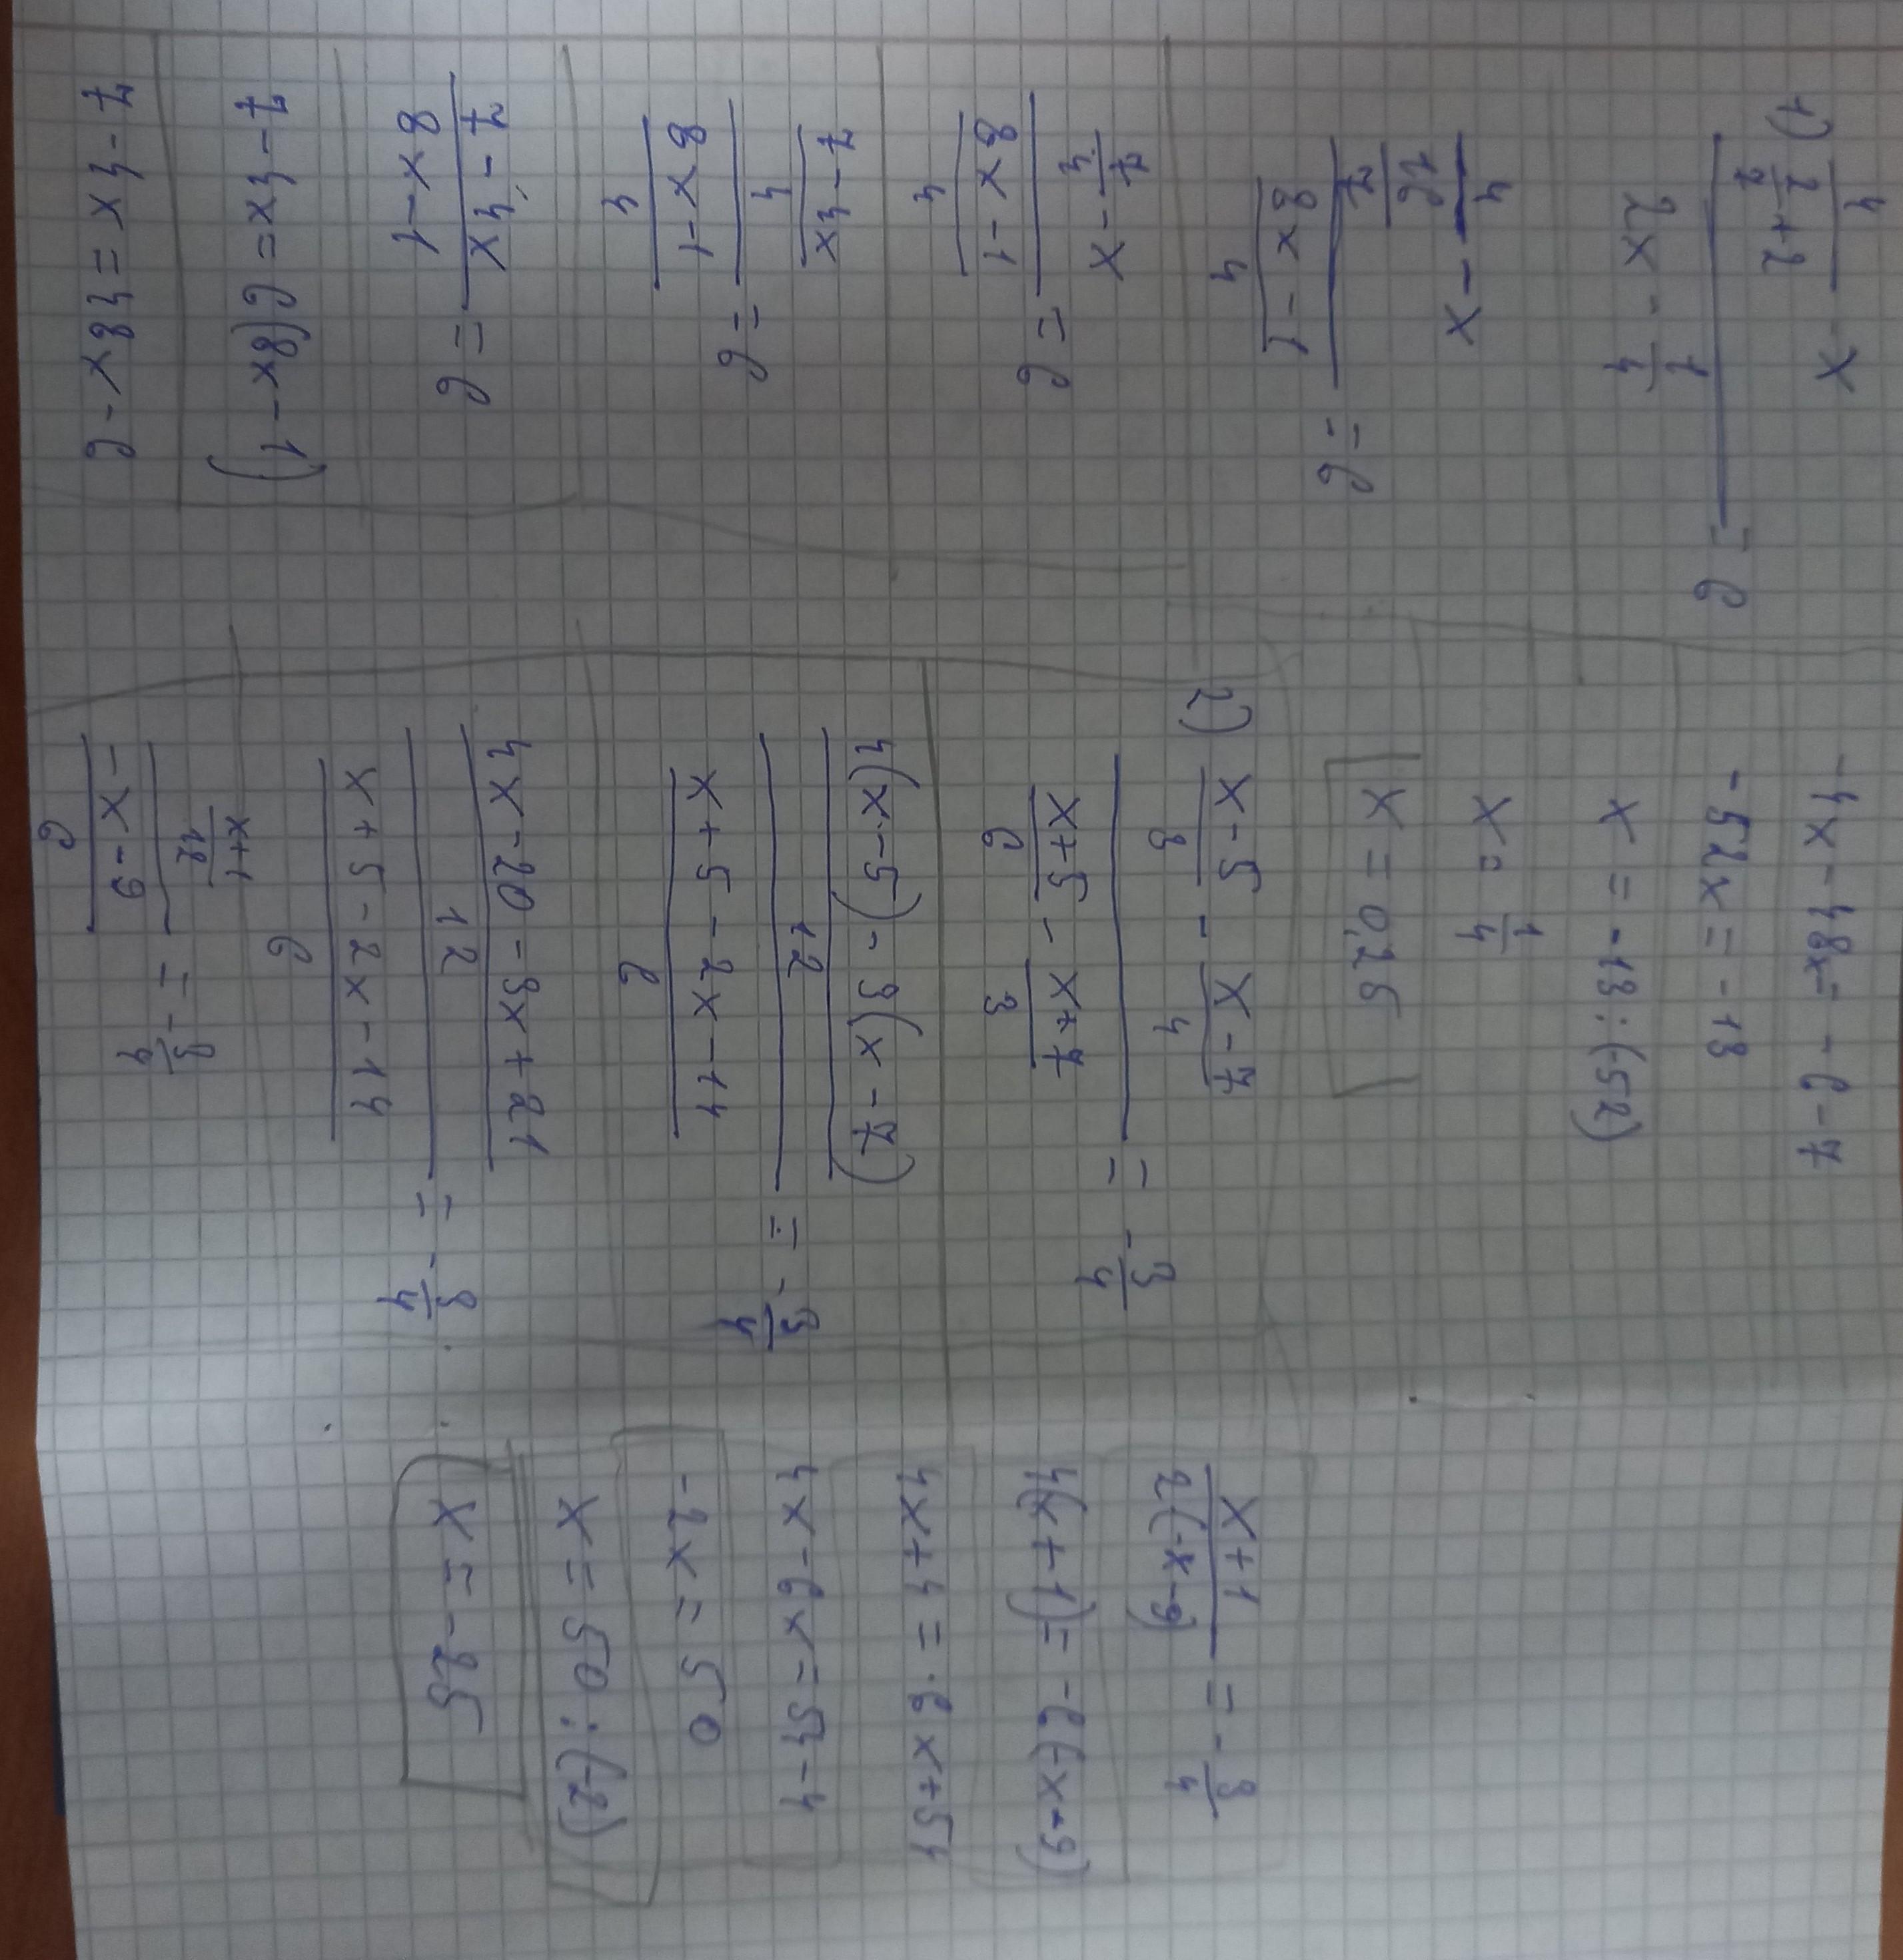 1) 4
2/7 + 2 - x
2x - 1/4 = 6
4
16/7 - x
8x - 1
4 = 6
7/4 - x
8x - 1
4 = 6
7 - 4x
4
8x - 1
4 = 6
7 - 4x
8x - 1 = 6
7 - 4x = 6(8x - 1)
7 - 4x = 48x - 6
-4x - 48x = -6 - 7
-52x = -13
x = -13 : (-52)
x = 1/4
x = 0,25
2) x - 5/3 - x - 7/4
x + 5/6 - x + 7/3 = -3/4
4(x - 5) - 3(x - 7)
12
x + 5 - 2x - 14
6 = -3/4
4x - 20 - 3x + 21
12
x + 5 - 2x - 14
6 = -3/4
x + 1
12
-x - 9
6 = -3/4
x + 1
2(-x - 9) = -3/4
4(x + 1) = -6(-x - 9)
4x + 4 = 6x + 54
4x - 6x = 54 - 4
-2x = 50
x = 50 : (-2)
x = -25